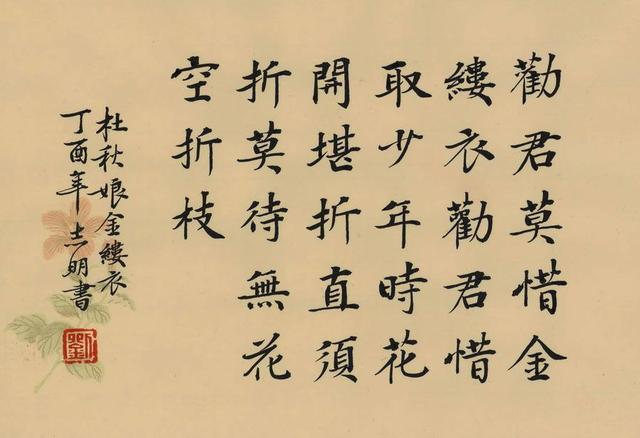 勸君莫惜金
縷衣勸君惜
取少年時花
開堪折直須
折莫待無花
空折枝
杜秋娘金縷衣
丁酉年志明書
劉